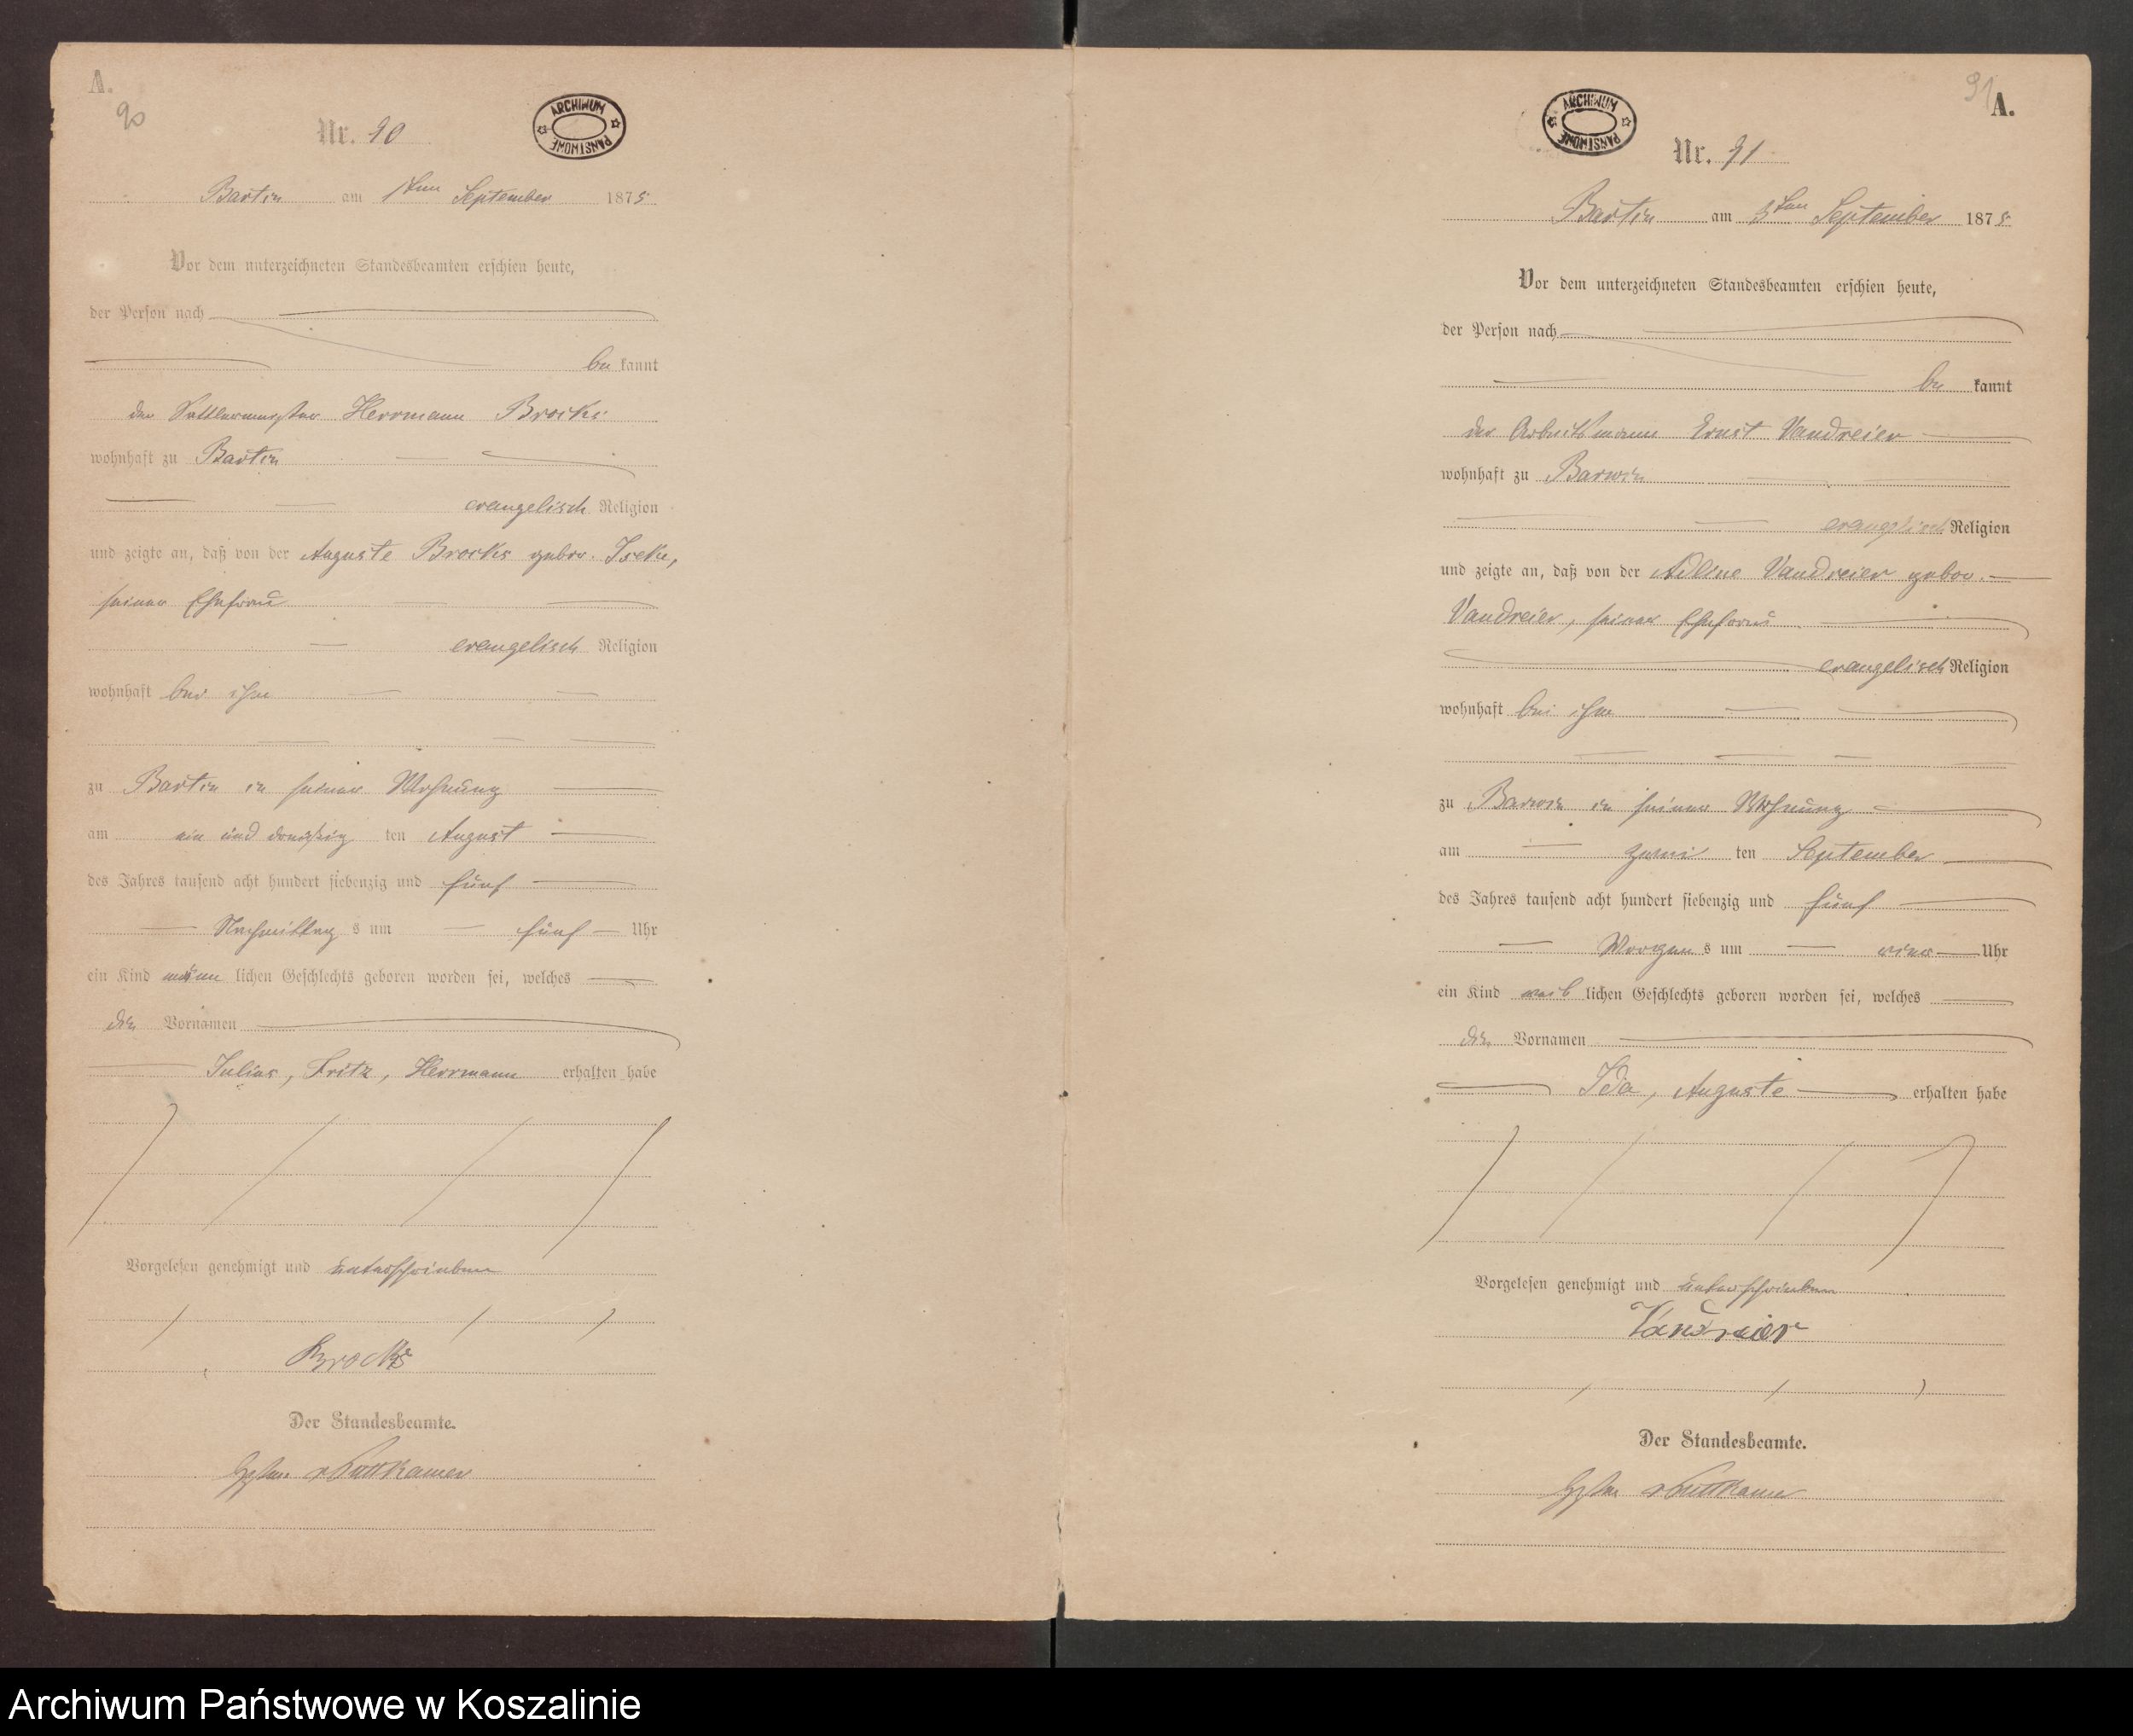 A.
90
Nr. 90
ARCHIWUM PAŃSTWOWE
Bartin am 1ten September 1875
Vor dem unterzeichneten Standesbeamten erschien heute,
der Person nach
be kannt
der Sattlermeister Herrmann Brocks
wohnhaft zu Bartin
evangelisch Religion
und zeigte an, daß von der Auguste Brocks gebor. Iseke,
seiner Ehefrau
evangelisch Religion
wohnhaft bei ihm
zu Bartin in seiner Wohnung
am ein und dreißig ten August
des Jahres tausend acht hundert siebenzig und fünf
Nachmittag s um fünf Uhr
ein Kind männ lichen Geschlechts geboren worden sei, welches
die Vornamen
Julius, Fritz, Herrmann erhalten habe
Vorgelesen genehmigt und unterschrieben
Brocks
Der Standesbeamte.
v Puttkamer
91
A.
ARCHIWUM PAŃSTWOWE
Nr. 91
Bartin am 3ten September 1875
Vor dem unterzeichneten Standesbeamten erschien heute,
der Person nach
be kannt
der Arbeitsmann Ernst Vandreier
wohnhaft zu Barwin
evangelisch Religion
und zeigte an, daß von der Adline Vandreier gebor.
Vandreier, seiner Ehefrau
evangelisch Religion
wohnhaft bei ihm
zu Barwin in seiner Wohnung
am zwei ten September
des Jahres tausend acht hundert siebenzig und fünf
Morgen s um vier Uhr
ein Kind weib lichen Geschlechts geboren worden sei, welches
die Vornamen
Ida, Auguste erhalten habe
Vorgelesen genehmigt und unterschrieben
Vandreier
Der Standesbeamte.
v Puttkamer
Archiwum Państwowe w Koszalinie